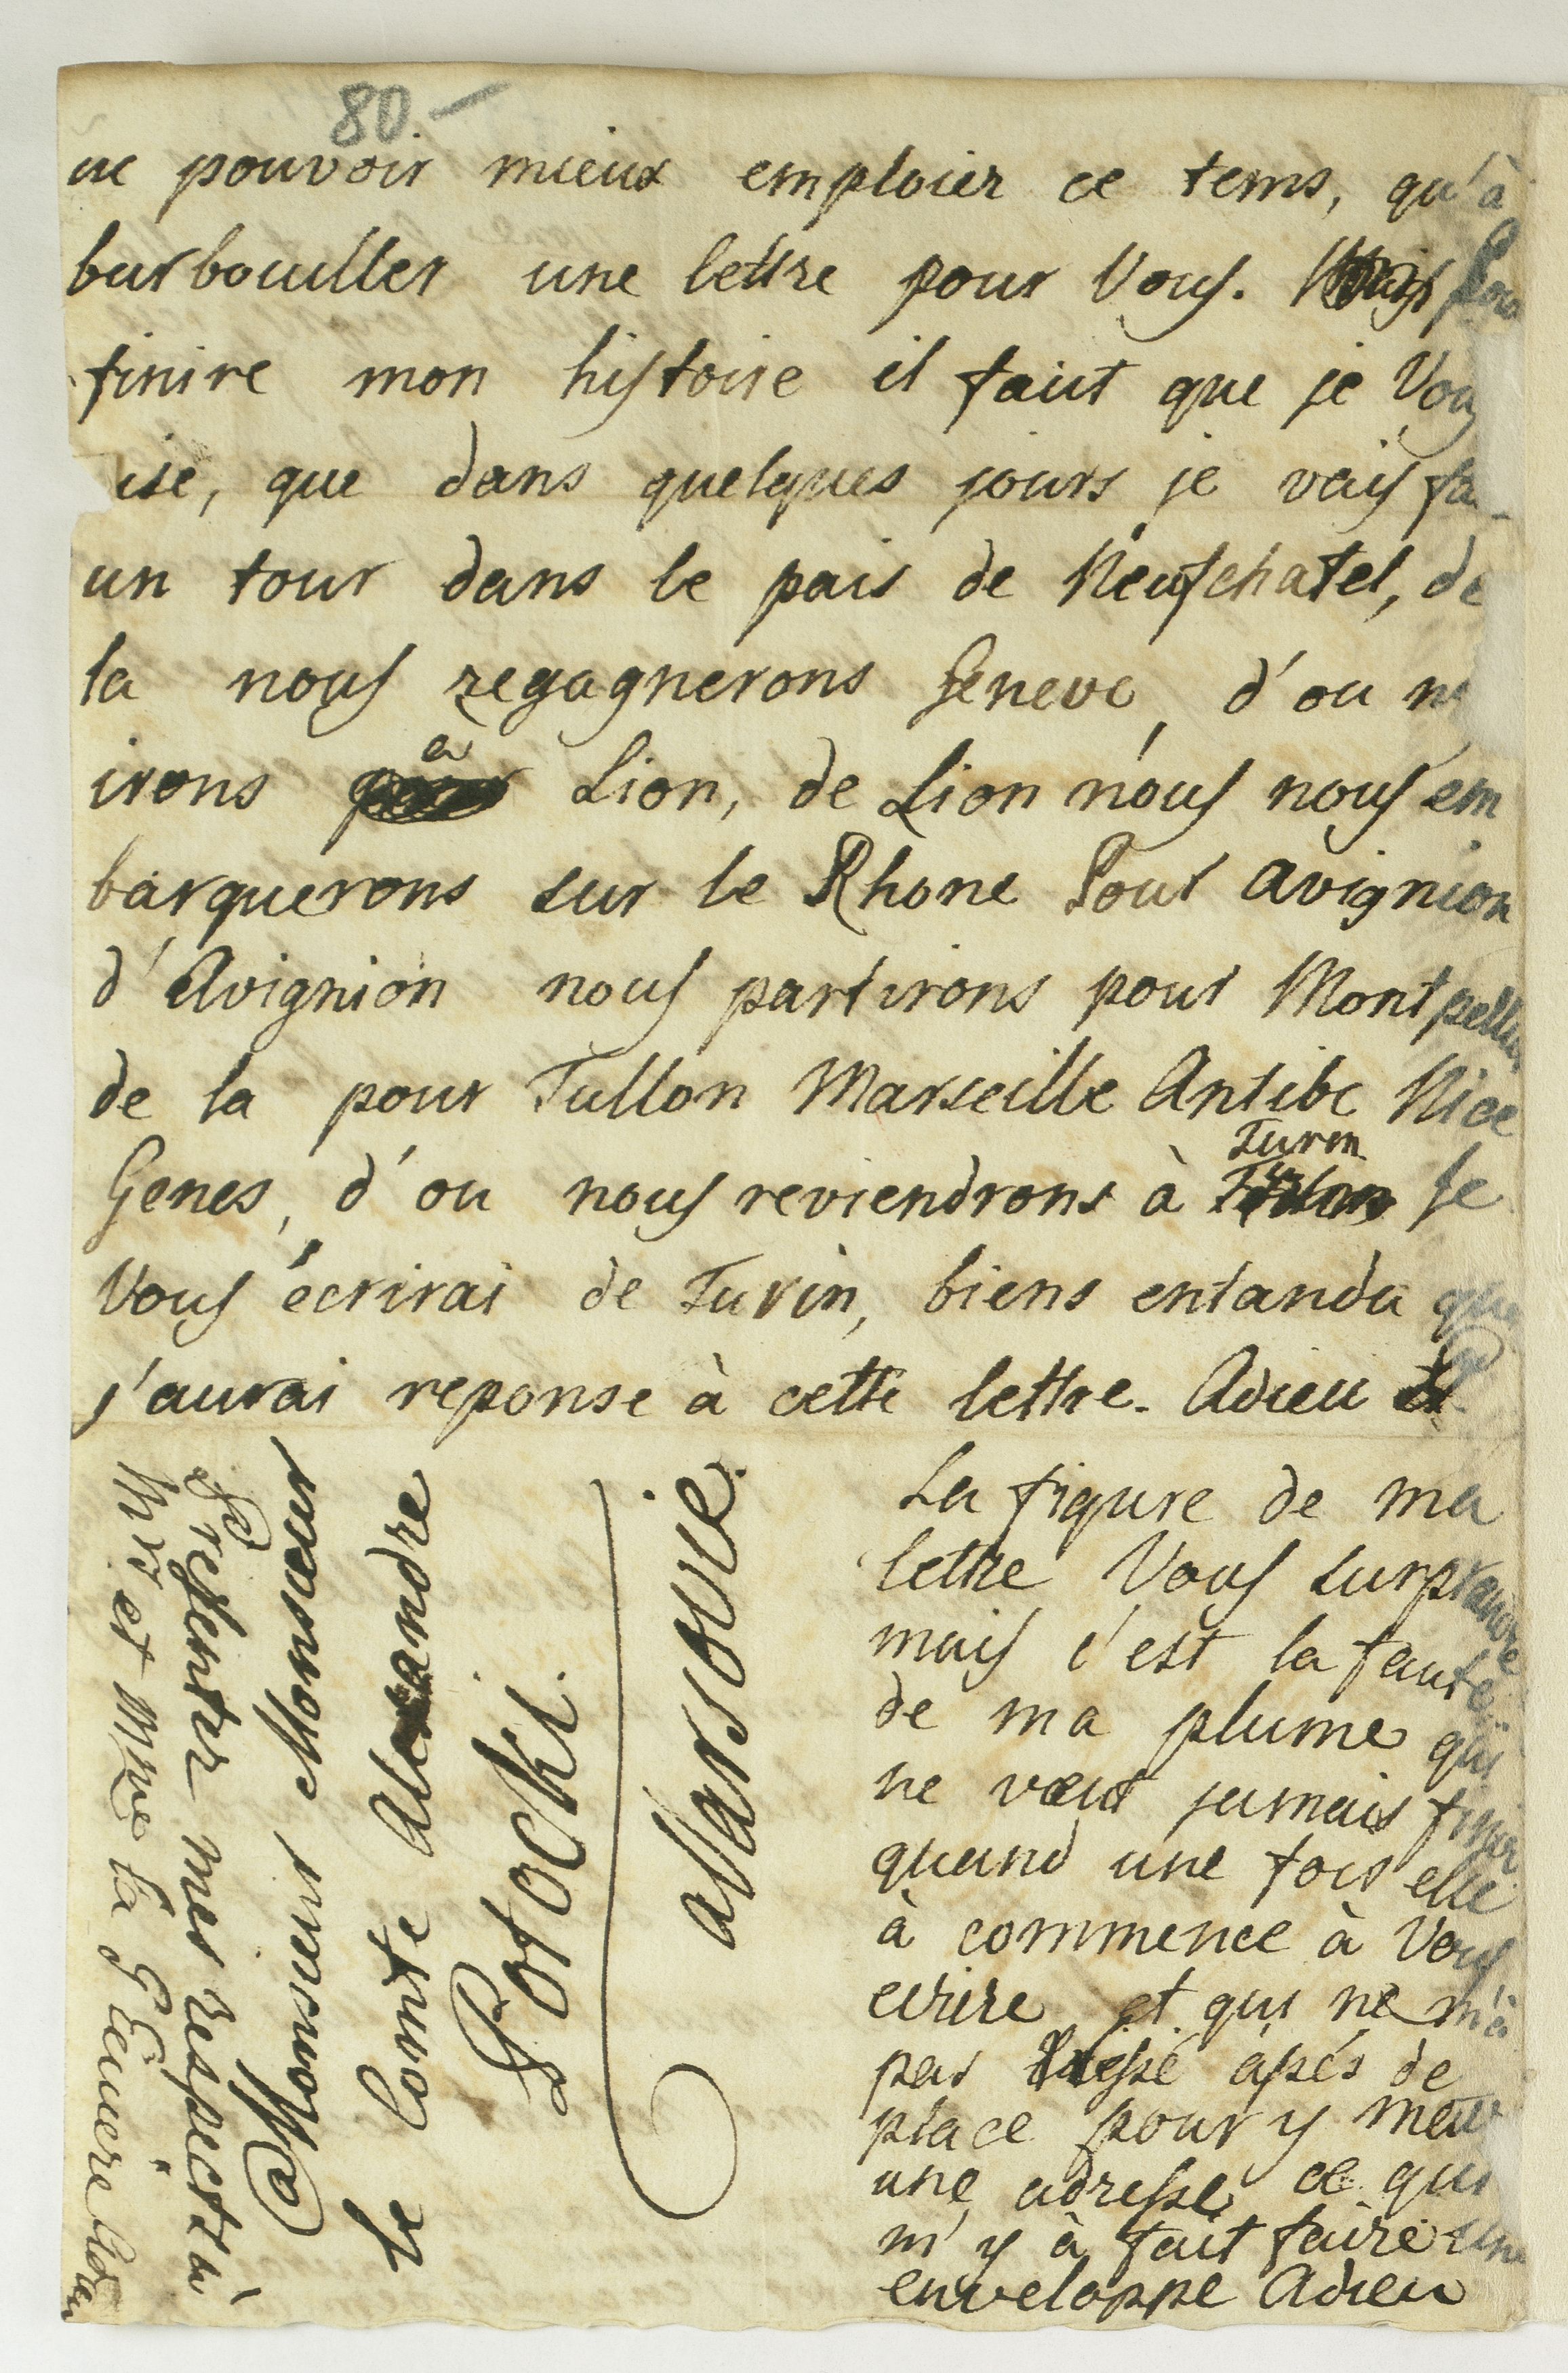 80 -
ne pouvoir mieux emploier ce tems, qu'à
barbouiller une lettre pour Vous. Mais pour
finire mon histoire il faut que je Vous
ise, que dans quelques jours je vais fa-
un tour dans le pais de Neufchatel, de
la nous regagnerons Geneve, d'ou n
irons à Lion, de Lion nous nous em
barquerons sur le Rhone Pour Avignion
d'Avignion nous partirons pour Montpellier
de la pour Tullon Marseille Antibe Nice
Genes, d'ou nous reviendrons à Turin Je
Vous écrirai de Turin, biens entandu que
j'aurai reponse à cette lettre. Adieu
La figure de ma
lettre Vous surprandre
mais c'est la faute
de ma plume qui
ne veut jamais finir
quand une fois elle
à commence à Vous
ecrire et qui ne m'à
pas laissé assés de
place pour y mettr
une adresse ce qui
m'y à fait faire une
enveloppe Adieu
à Monsieur
Monsieur
le Comte Alexandre
Potocki
à Varsovie.
Presenter mes respects à
Mr et Mme la